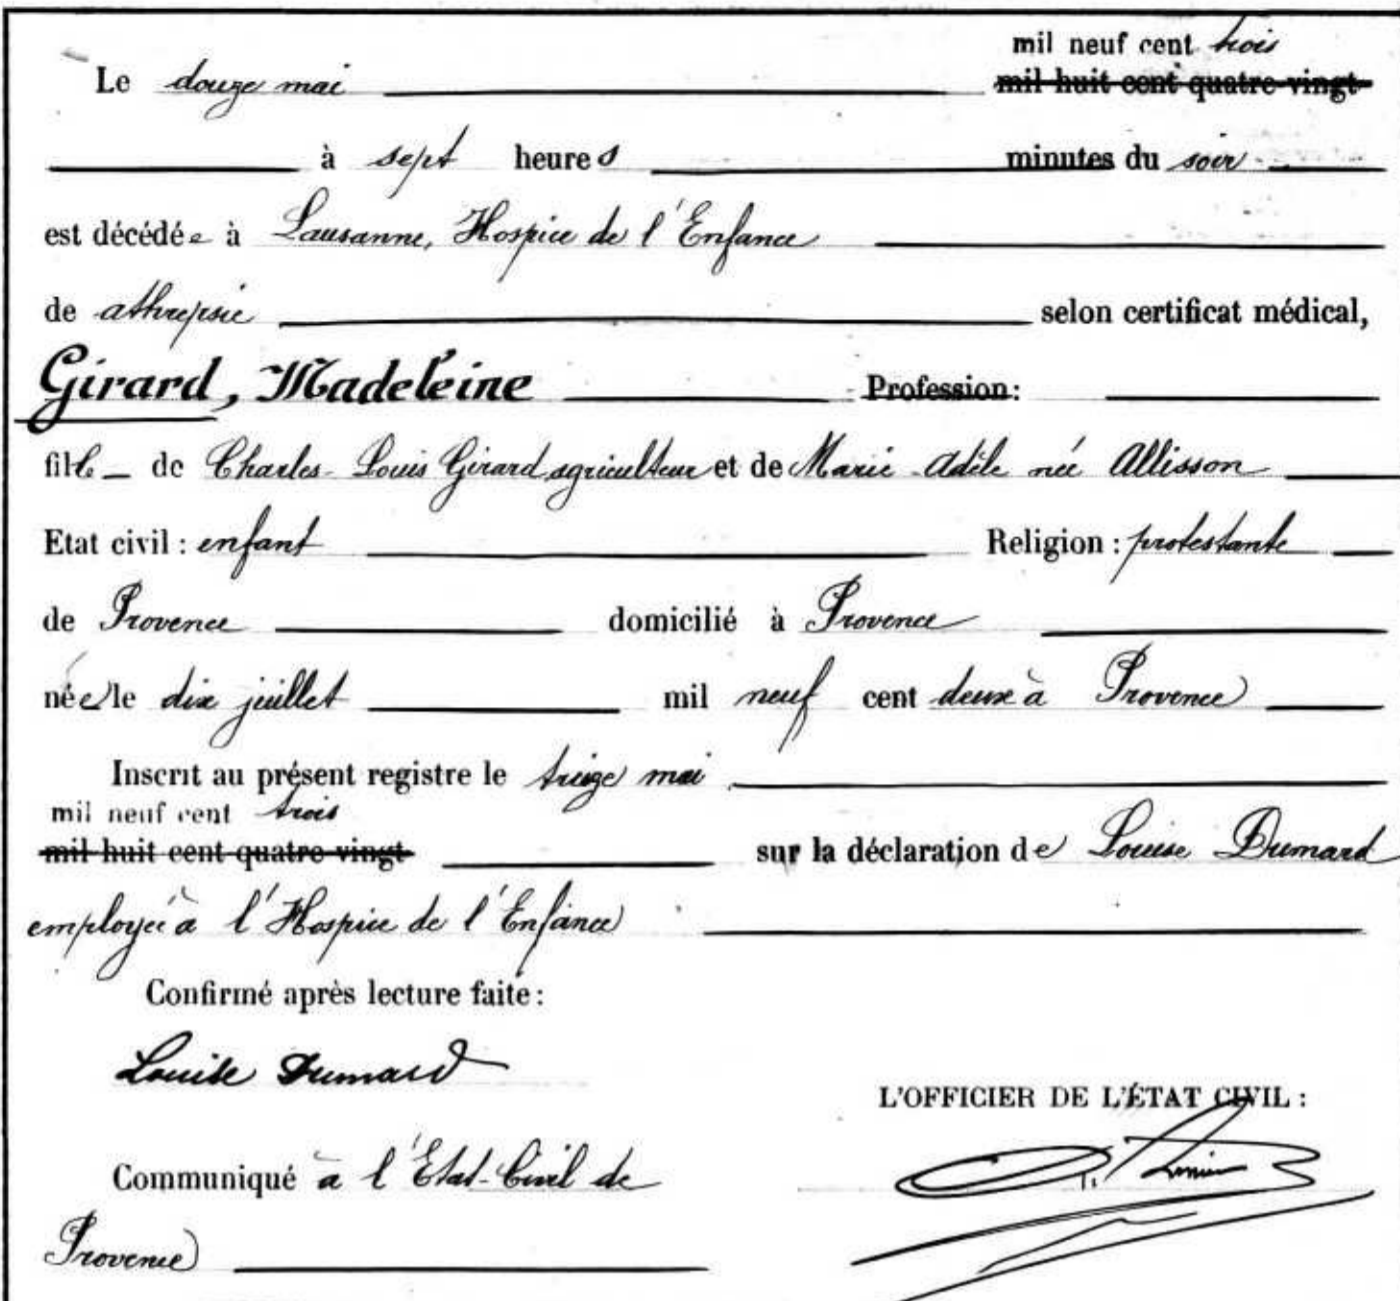 mil neuf cent trois
Le douze mai mil huit cent quatre-vingt
à sept heures minutes du soir
est décédée à Lausanne, Hospice de l'Enfance
de athrepsie selon certificat médical,
Girard, Madeleine Profession:
fille de Charles-Louis Girard agriculteur et de Marie-Adèle née Allisson
Etat civil : enfant Religion : protestante
de Provence domicilié à Provence
née le dix juillet mil neuf cent deux à Provence
Inscrit au présent registre le treize mai
mil neuf cent trois
mil huit cent quatre-vingt sur la déclaration de Louise Dumard
employée à l'Hospice de l'Enfance
Confirmé après lecture faite :
Louise Dumard
L'OFFICIER DE L'ÉTAT CIVIL :
Communiqué à l'Etat-Civil de
Provence